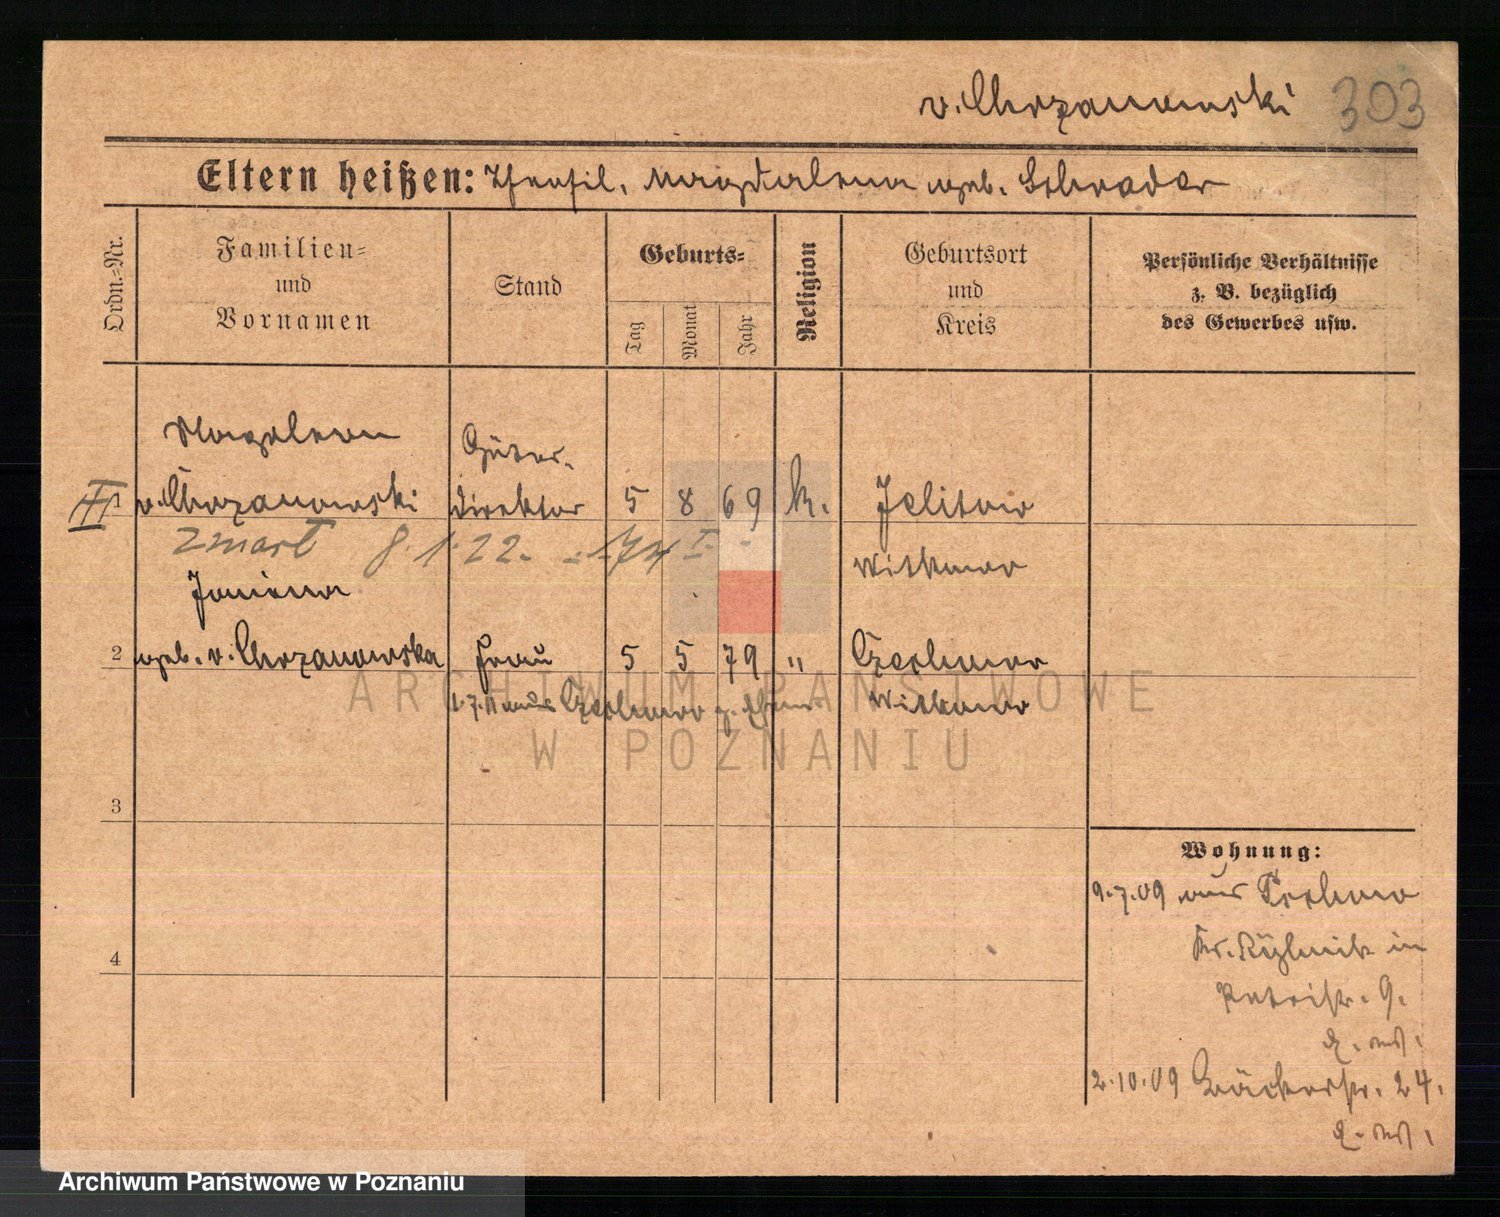 v. Chrzanowski 303
Eltern heißen: Theofil, Magdalena geb. Schrader
Ordn.-Nr.
Familien-
und
Vornamen
Stand
Geburts-
Tag
Monat
Jahr
Religion
Geburtsort
und
Kreis
Persönliche Verhältnisse
z. B. bezüglich
des Gewerbes usw.
Güter-
1 v. Chrzanowski direktor 5 8 69 k. Jelitowo
zmarł 8.1.22. Witkowo
Janina
2 geb. v. Chrzanowska Frau 5 5 79 " Czechowo
1.7.11 aus Czechowo Witkowo
3
4
Wohnung:
9.7.09 aus
Kr. Rybnik in
Petristr. 9.
2.10.09 Bäckerstr. 24.
ARCHIWUM PAŃSTWOWE
W POZNANIU
Archiwum Państwowe w Poznaniu